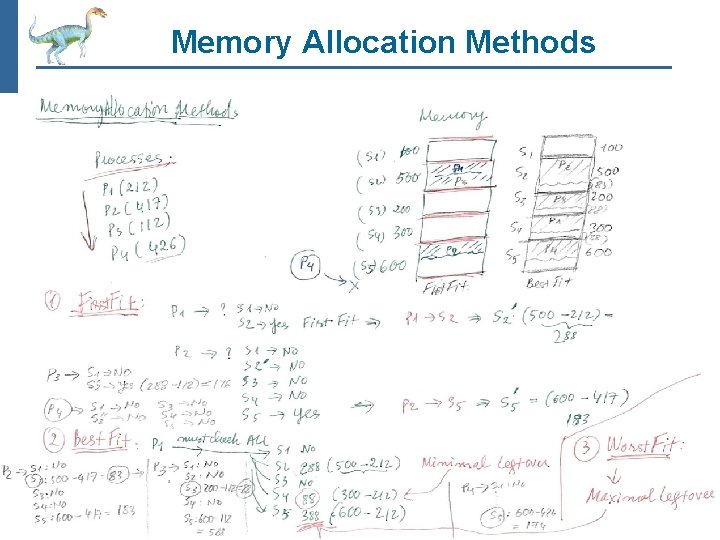 Memory Allocation Methods
Memory Allocation Methods
Processes:
P1 (212)
P2 (417)
P3 (112)
P4 (426)
Memory
(S1) 100
(S2) 500
P1
P3
(S3) 200
(S4) 300
P2
(S5) 600
P4
X
First Fit
S1 100
S2 P2 500
(83)
S3 P3 200
(88)
S4 P1 300
(88)
S5 P4 600
Best Fit
① First Fit:
P1 → ? S1 → No
S2 → yes First Fit ⇒ P1 → S2 ⇒ S2' (500 - 212) =
288
P2 → ? S1 → No
S2' → No
S3 → No
S4 → No
S5 → yes ⇒ P2 → S5 ⇒ S5' = (600 - 417)
183
P3 → S1 → No
S2' → yes (288 - 112) = 176
P4 → S1 → No
S2 → No
S3 → No
S4 → No
S5 → No
② Best Fit: P1 must check ALL
S1 No
S2 288 (500 - 212)
S3 No
S4 88 (300 - 212)
S5 388 (600 - 212)
Minimal leftover
P2 → S1: No
S2: 500 - 417 = 83
S3: No
S4: No
S5: 600 - 417 = 183
P3 → S1: No
S2: No
S3: 200 - 112 = 88
S4: No
S5: 600 - 112
= 588
P4 → S1: No
S5: 600 - 426
= 174
③ Worst Fit:
Maximal leftover